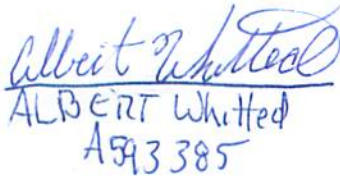 Albert Whitted
ALBERT Whitted
A593385